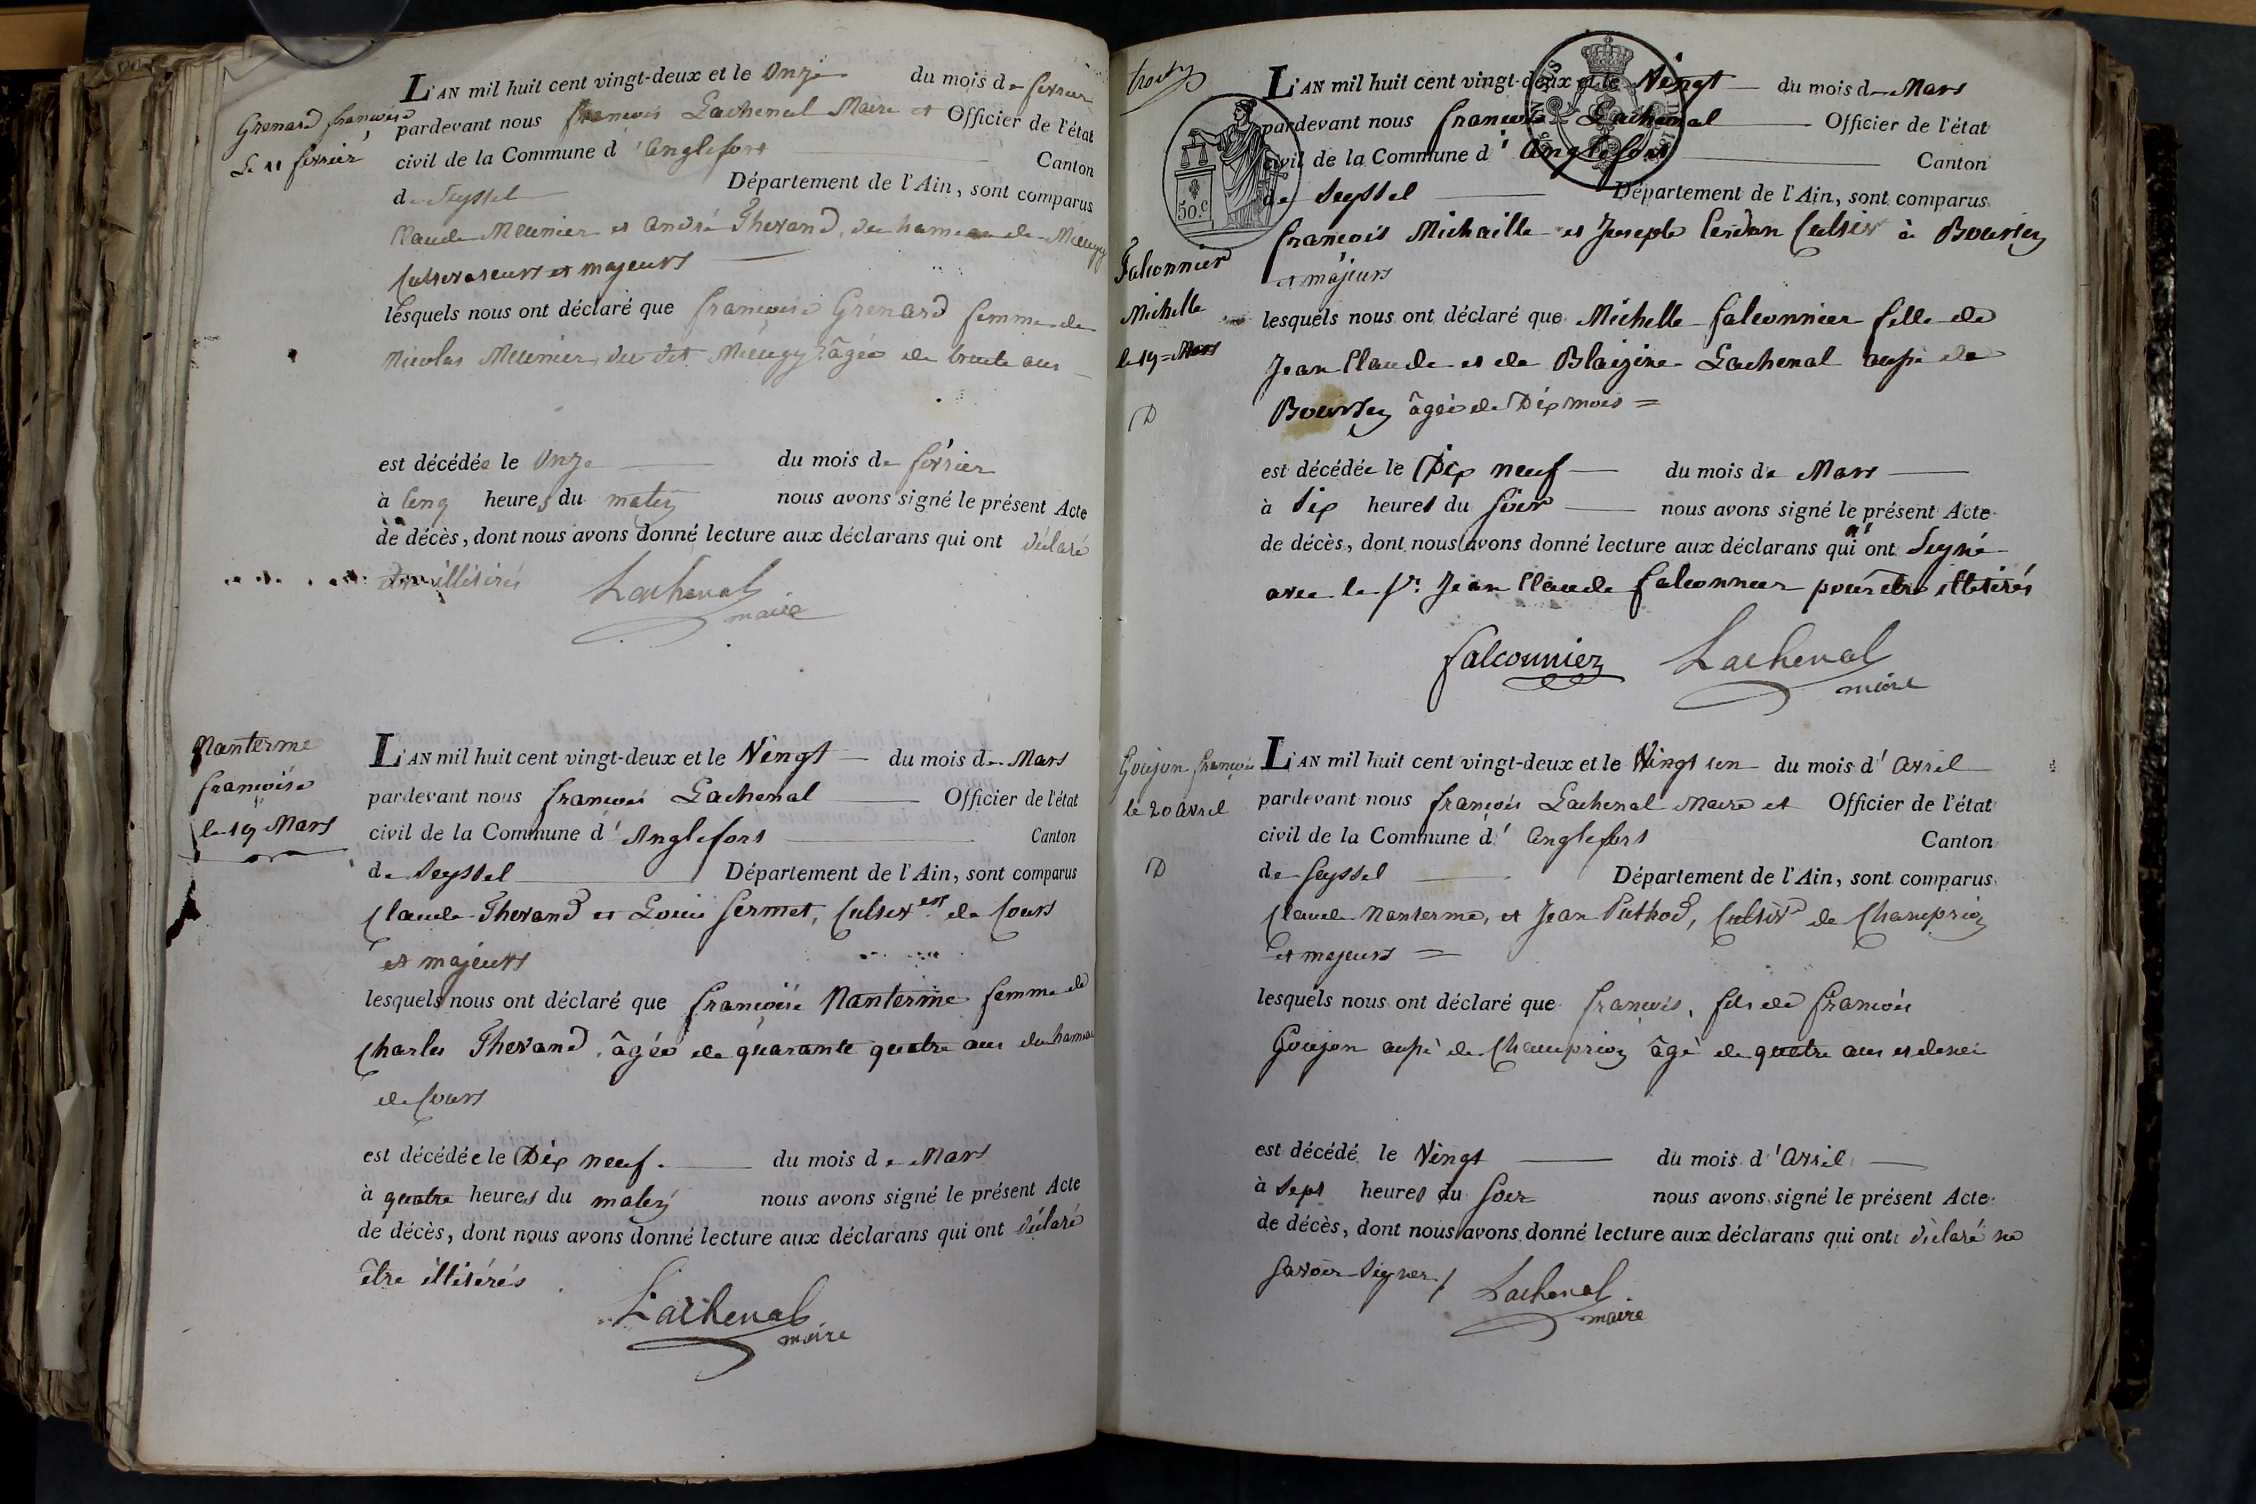 Grenard françoise
Le 11 février
L'AN mil huit cent vingt-deux et le Onze du mois de février
pardevant nous françois Lachenal Maire et Officier de l'état
civil de la Commune d'Anglefort Canton
de Seyssel Département de l'Ain, sont comparus
Claude Meunier et André Thevand, du hameau de Mieugy
Cultivateurs et majeurs
lesquels nous ont déclaré que françoise Grenard femme de
Nicolas Meunier, du dit Mieugy, âgée de trente ans
est décédée le Onze du mois de février
à Cinq heures du matin nous avons signé le présent Acte
de décès, dont nous avons donné lecture aux déclarans qui ont déclaré
être illitérés
Lachenal
maire
Nanterme
françoise
le 19 Mars
L'AN mil huit cent vingt-deux et le Vingt du mois de Mars
pardevant nous françois Lachenal Officier de l'état
civil de la Commune d'Anglefort Canton
de Seyssel Département de l'Ain, sont comparus
Claude Thevand et Louis Sermet, Cultivrs de Cours
et majeurs
lesquels nous ont déclaré que françoise Nanterme femme de
Charles Thevand, âgée de quarante quatre ans du hameau
de Cours
est décédée le Dix neuf du mois de Mars
à quatre heures du matin nous avons signé le présent Acte
de décès, dont nous avons donné lecture aux déclarans qui ont déclaré
être illitérés
Lachenal
maire
50.c
falconnier
Michelle
le 19 = Mars
D
L'AN mil huit cent vingt-deux et le Vingt du mois de Mars
pardevant nous françois Lachenal Officier de l'état
civil de la Commune d'Anglefort Canton
de Seyssel Département de l'Ain, sont comparus
françois Michaille et Joseph Cerdon Cultivr à Boursin
et majeurs
lesquels nous ont déclaré que Michelle falconnier fille de
Jean Claude et de Blaizine Lachenal aussi de
Boursin âgée de Dix mois =
est décédée le Dix neuf du mois de Mars
à Six heures du Soir nous avons signé le présent Acte
de décès, dont nous avons donné lecture aux déclarans qui n' ont Signé
avec le Sr. Jean Claude falconnier pour être illitérés
falconnier Lachenal
maire
Goujon françois
le 20 avril
D
L'AN mil huit cent vingt-deux et le Vingt un du mois d'avril
pardevant nous françois Lachenal Maire et Officier de l'état
civil de la Commune d'Anglefort Canton
de Seyssel Département de l'Ain, sont comparus
Claude Nanterme, et Jean Puthod, Cultivrs de Champrion
et majeurs =
lesquels nous ont déclaré que françois, fils de françois
Goujon aussi de Champrion âgé de quatre ans et demi
est décédé le Vingt du mois d'avril
à Sept heures du Soir nous avons signé le présent Acte
de décès, dont nous avons donné lecture aux déclarans qui ont déclaré ne
Savoir Signer /
Lachenal
maire